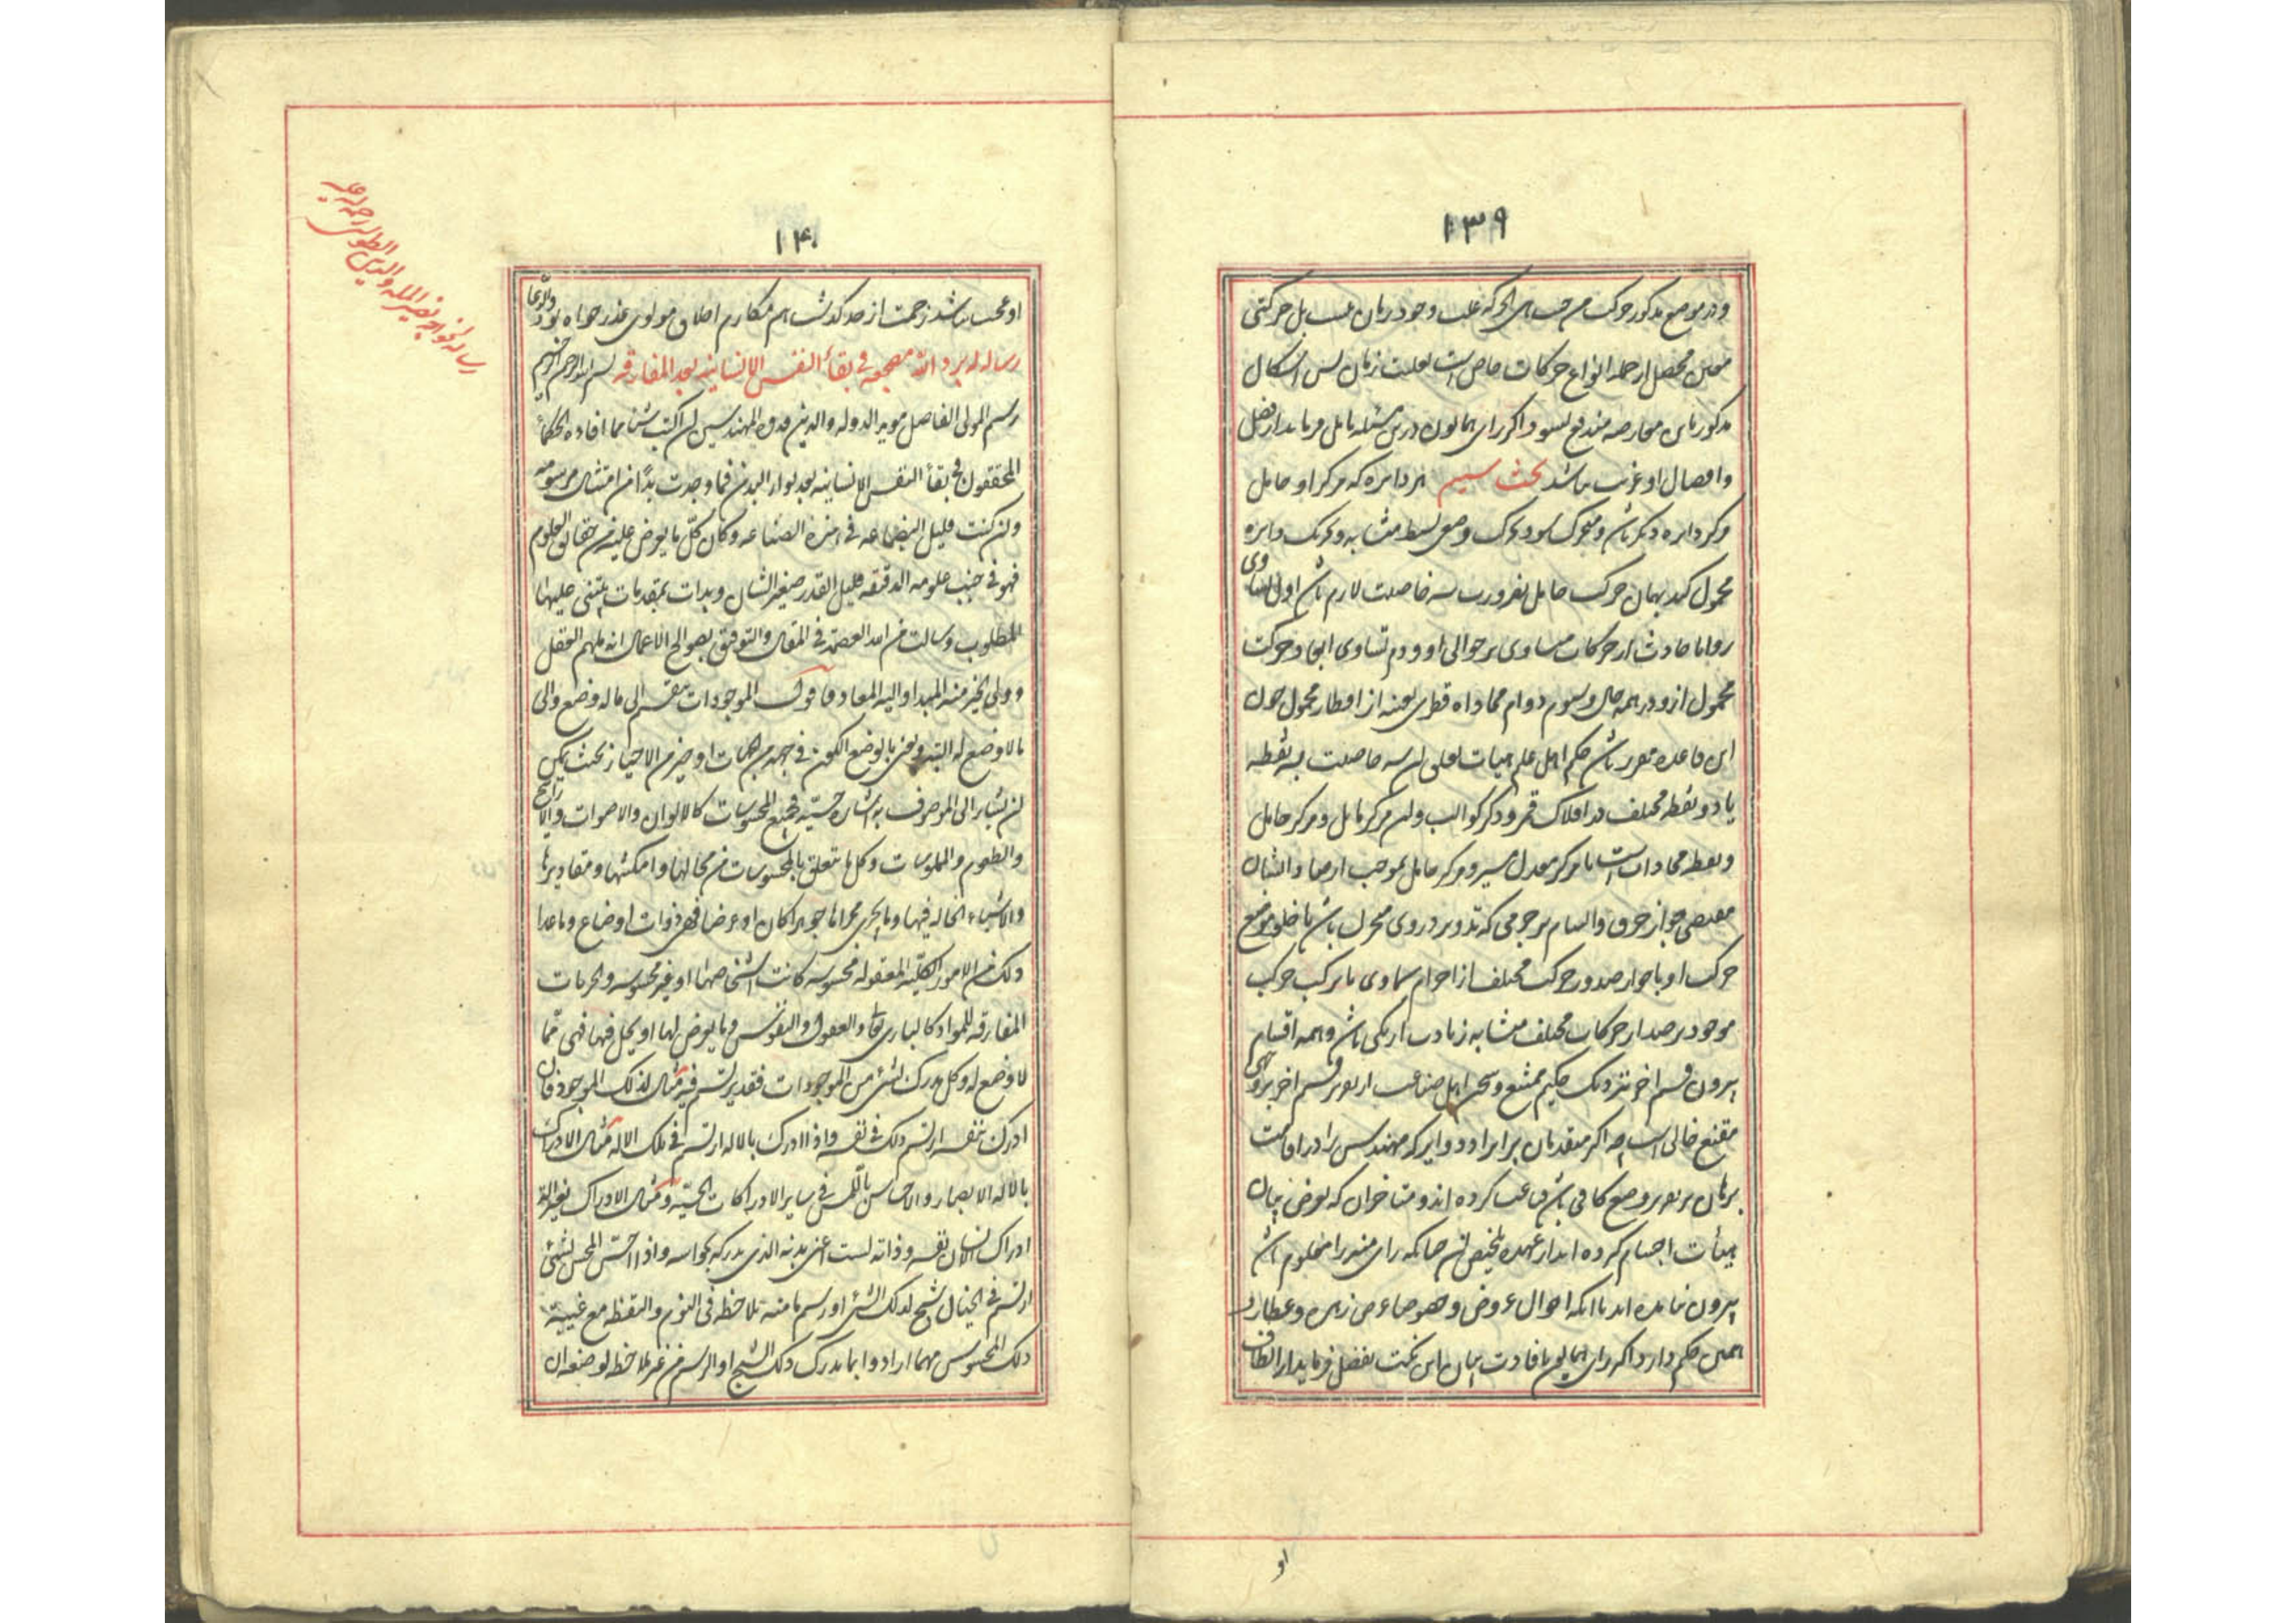 ۱۳۹
و در موضع مذکور حرکت من حیث هی الحرکه علت وجود زمان نیست بل حرکتی
معین محصل از جمله انواع حرکات خاص است بعلت زمان پس اشکال
مذکور باین معارضه مندفع نشود و اگر رای همایون درین مسئله تامل فرماید از فضل
و افضال او غریب نباشد بحث سیم هر دایره که مرکز او حامل
مرکز دایره دیگر باشد و متحرک شود بحرکت وضعی بسیط متشابه و تحریک دایره
محمول کند بهمان حرکت حامل بضرورت سه خاصیت لازم باشد اول تساوی
زوایا حادث از حرکات مساوی بر حوالی او و دوم تساوی ابعاد حرکت
محمول ازو در همه حال و سیوم دوام محاذاه قطری بعینه از اقطار محمول چون
این قاعده مقرر باشد حکم اهل علم هیات بتعلق این سه خاصیت بسه نقطه
یا دو نقطه مختلف در افلاک قمر و دیگر کواکب و آن مرکز مایل و مرکز حامل
و نقطه محاذات است یا مرکز معدل مسیر و مرکز حامل بموجب ارصاد ایشان
مقتضی جواز خرق و التیام بر جرمی که تدویر در وی متحرک باشد یا خلو موضع
حرکت او یا جواز صدور حرکت مختلف از اجرام سماوی یا ترکیب حرکت
موجود در رصد از حرکات مختلف متشابه زیادت از یکی باشد و همه اقسام
بیرون قسم اخر نزدیک حکیم ممتنع و سخن اهل صناعت در تقریر قسم اخر بر وجهی
مقنع خالی است چه اگر متقدمان بر ایراد دوایر که مهندس را در اقامت
برهان بر تقریر وضع کافی باشد قناعت کرده اند و متاخران که تعرض بیان
هیأت اجسام کرده اند از عهده تلخیص آن چنانکه رای منیر را معلوم باشد
بیرون نیامده اند با آنکه احوال عروض و خصوصا عرض زهره و عطارد
همین حکم دارد اگر رای همایون بافادت بیان این نکت تفضل فرماید از الطاف
او
۱۴۰
او عجب نباشد زحمت از حد گذشت هم مکارم اخلاق مولوی عذر خواه بود والدعا
رساله له برد الله مضجعه فی بقاء النفس الانسانیه بعد المفارقه بسم الله الرحمن الرحیم
رسم المولی الفاضل موید الدوله والدین قدوه المهندسین ان اکتب شیئا مما افاده الحکماء
المحققون فی بقاء النفس الانسانیه بعد بوار البدن فما وجدت بدا من امتثال مرسومه
وان کنت قلیل البضاعه فی هذه الصناعه و کان کل ما یعرض علیه من حقائق العلوم
فهو فی جنب علومه الدقیقه قلیل القدر صغیر الشان و بدات بمقدمات یبتنی علیها
المطلوب و سالت من الله العصمه فی المقال والتوفیق بصوالح الاعمال انه ملهم العقل
و ولی الخیر منه المبدا و الیه المعاد فاقول الموجودات ینقسم الی ما له وضع والی
ما لا وضع له البته و نعنی بالوضع الکون فی جهه من الجهات او حیز من الاحیاز بحیث یمکن
ان یشار الی الموصوف به اشاره حسیه فجمیع المحسوسات کالالوان والاصوات والروایح
والطعوم والملموسات و کل ما یتعلق بالمحسوسات من محالها و امکنتها و مقادیرها
والاشیاء الحاله فیها و ما یجری مجراها جوهرا کان او عرضا فهی ذوات اوضاع و ما عدا
ذلک من الامور الکلیه المعقوله محسوسه کانت اشخاصها او غیر محسوسه والجزئیات
المفارقه للمواد کالباری تعالی والعقول والنفوس و ما یعرض لها او یحل فیها فهی مما
لا وضع له و کل مدرک لشئ من الموجودات فقد یرتسم فیه مثال لذلک الموجود فان
ادرک بنفسه ارتسم ذلک فی نفسه و اذا ادرک بالاله ارتسم فی تلک الاله مثال الادراک
بالاله الابصار والاحساس باللمس فی سایر الادراکات الحسیه و مثال الادراک بغیر الاله
ادراک الانسان نفسه و ذاته لست اعنی بدنه الذی یدرکه بحواسه و اذا احس المحس لشئ
ارتسم فی الخیال شبح لذلک الشئ او رسم ما منه یلاحظه فی النوم والیقظه مع غیبته
ذلک المحسوس مهما اراد و انما یدرک ذلک الشبح او الرسم من غیر ملاحظه لوضعه ان
رساله خواجه نصیر المله والدین الطوسی رحمه الله علیه